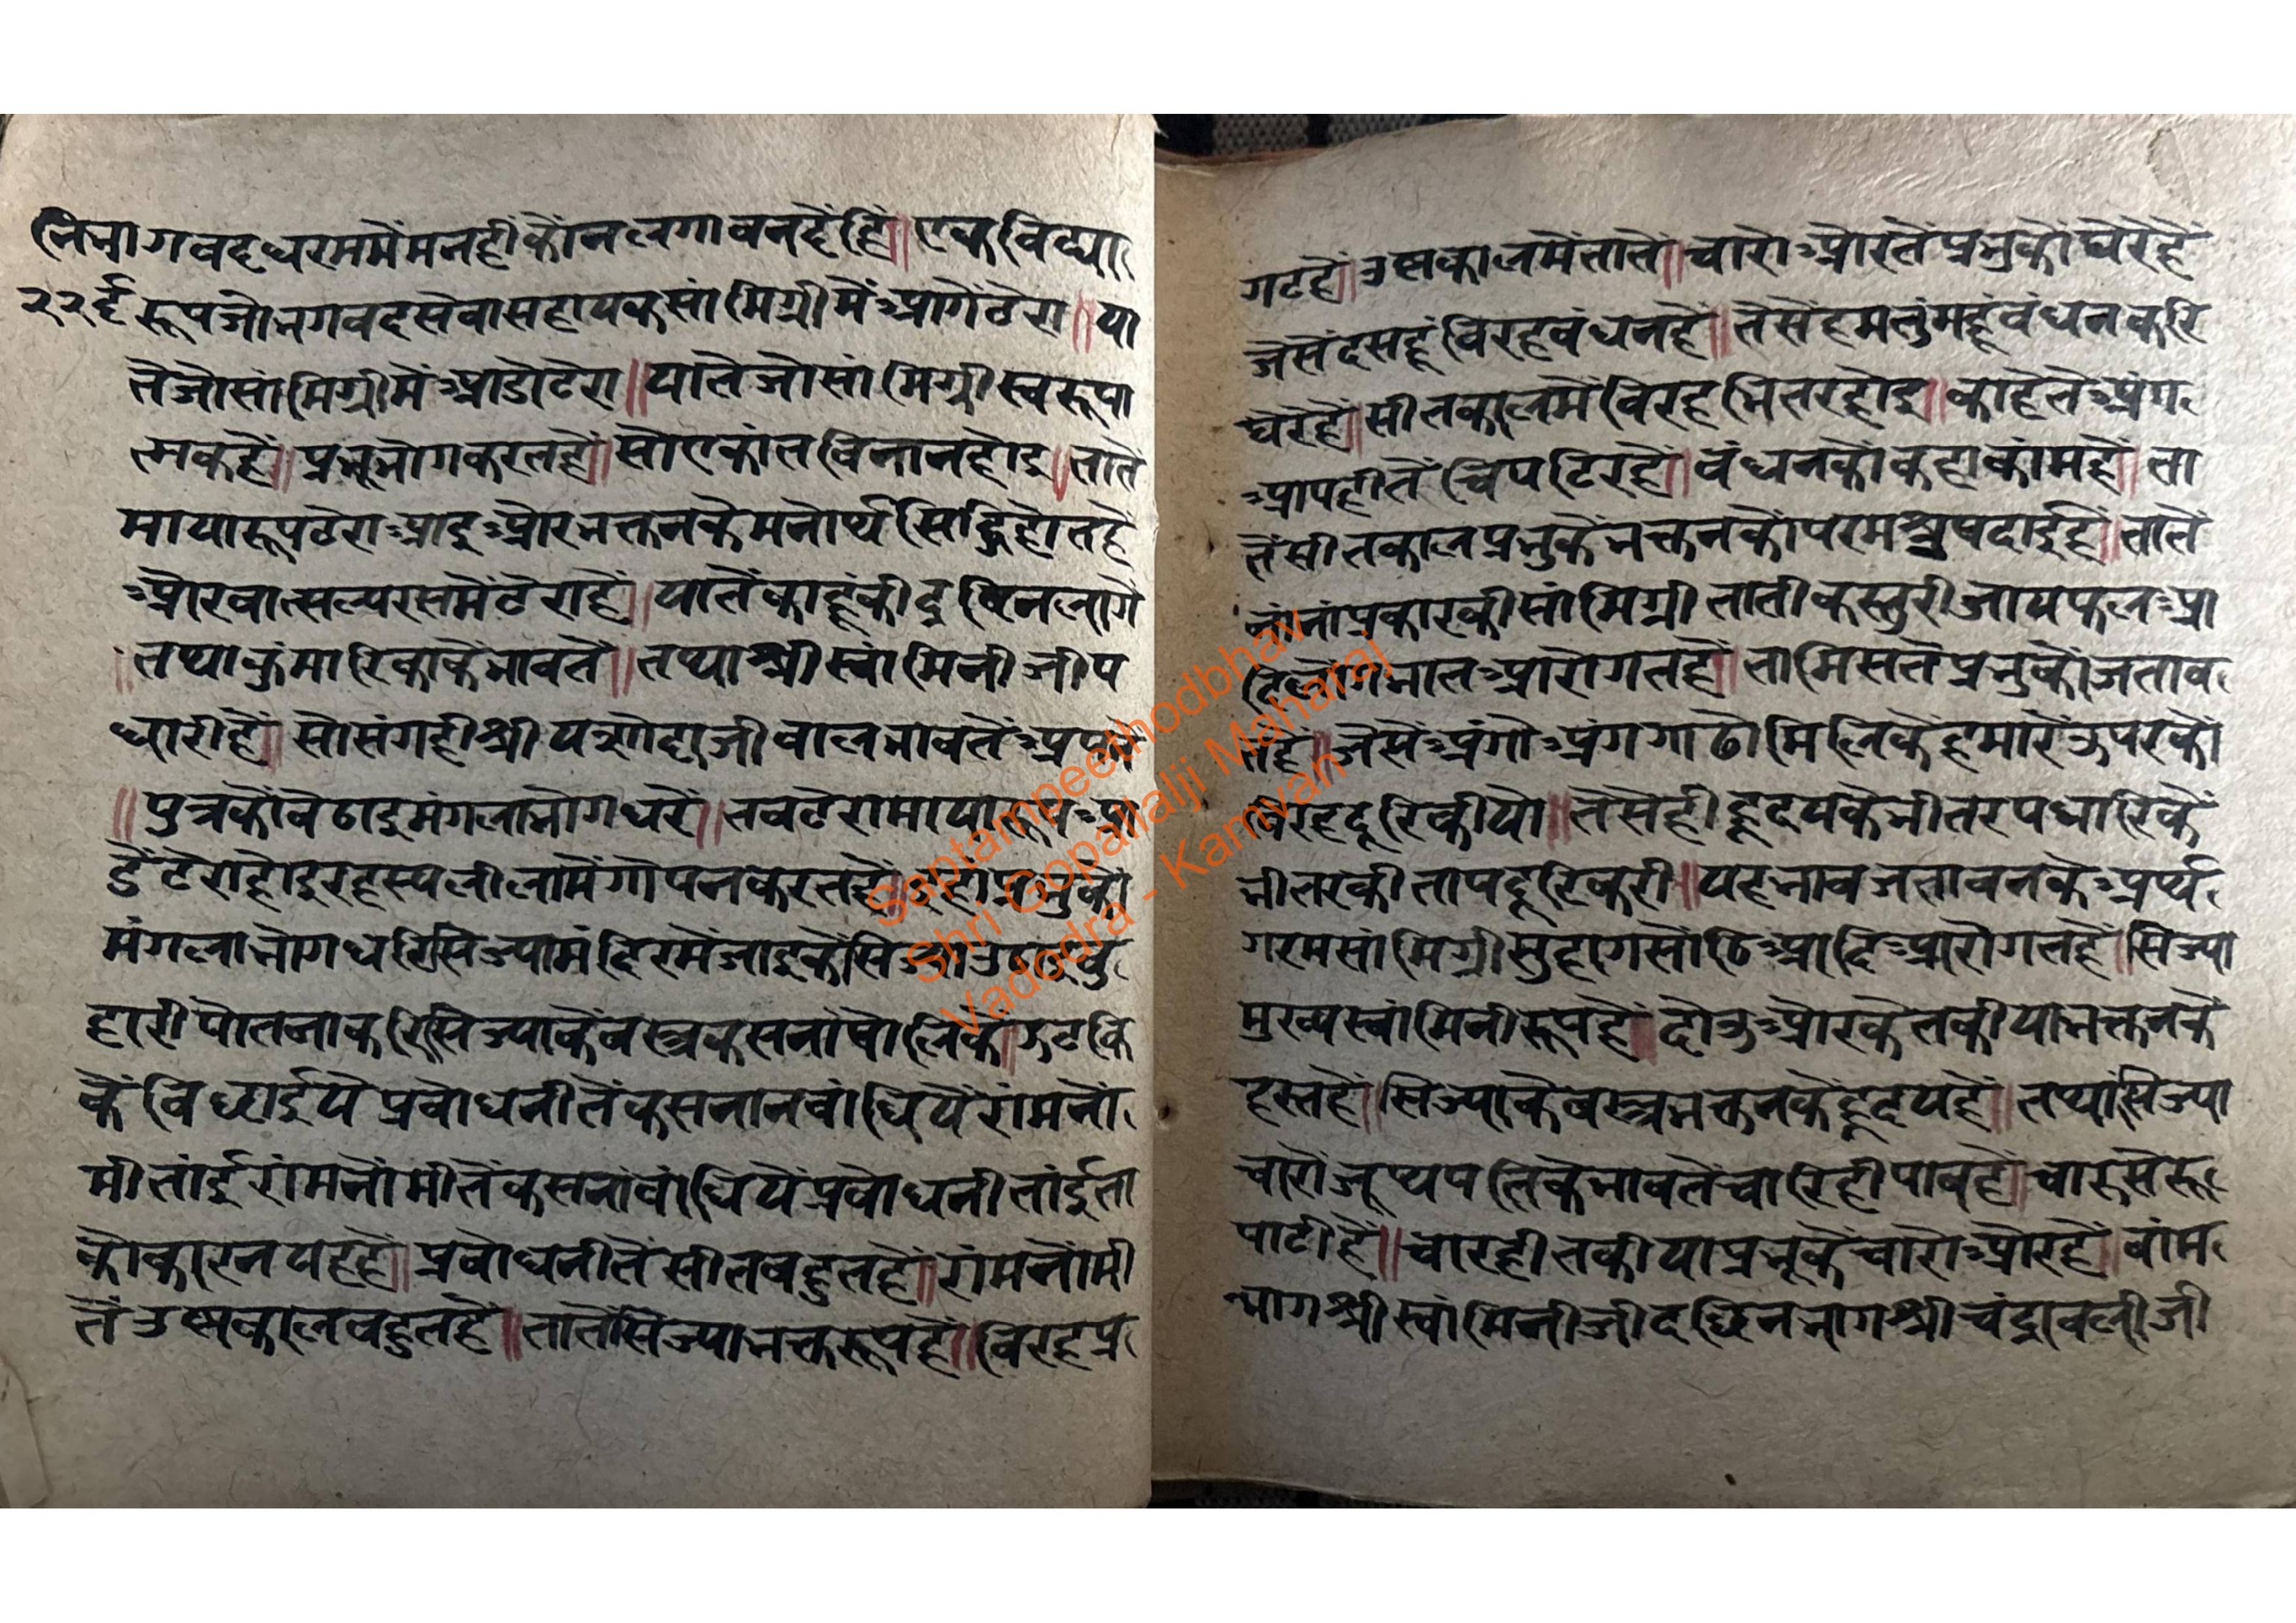 नि भागवद धरममैं मन हीकौं न लगावन दैंहि॥ एक विद्या
२२६ रूप जो भगवद सेवा सहायक सांमिग्री मैं आगें टेरा॥ या
तें जो सांमिग्री मैं आडो टेरा॥ यातें जो सांमिग्री स्वरूपा
त्मक हैं॥ प्रभू भोग करत हैं॥ सो एकांत विना न होइ॥ तातें
माया रूप टेरा आइ और भक्तन के मनोर्थ सिद्धि होत हैं
और वात्सल्य रस मैं टेरा है॥ यातें काहूंकी द्रष्टि न लागें
॥ तथा कुंमारिका के भावतें॥ तथा श्री स्वांमिनीजी प
धारी हैं॥ सो संगही श्री यशोदाजी बाल भावतें अपनें
॥ पुत्रकों बेठाइ मंगला भोग धरें॥ तब टेरा माया रूप आ
डें टेरा होइ रहस्य लीला मैं गोपन करत हैं॥ इहां प्रभुकों
मंगला भोग धरि सिज्या मंदिर मैं जाइकें सिज्या उठाइ बु
हारी पोतना करि सिज्या के वस्त्र कसना षोलिकें॥ झटकि
कें बिछाई यें प्रबोधनी तें कसना न बांधियें रांमनों
मी तांई रांमनोंमी तें कसनां बांधियें प्रबोधनी तांई ता
को कारन यह हैं॥ प्रबोधनी तें सीत बहुत हैं॥ रांमनोंमी
तें उष्णकाल बहुत हैं॥ तातें सिज्या भक्त रूप हैं॥ विरह प्र
गट हैं॥ उष्णकाल मैं तातें॥ चारों औरतें प्रभुकों घेरें हैं
जेसें दसहूं विरह बंधन हैं॥ तेसें हम तुंमहूं बंधन करि
घेरें हैं॥ सीतकाल मैं विरह भितर होइ॥ काहेतें अंग
आपही तें चिपटि रहें॥ बंधनकों कहा कांम हैं॥ ता
तें सीतकाल प्रभुकें भक्तनकों परम सुषदाई हैं॥ तातें
नांनां प्रकारकी सांमिग्री ताती कस्तुरी जायफल आ
दि लोंग भात आरोगत हैं॥ ता मिसतें प्रभुकों जताव
त हैं॥ जेसें अंगो अंग गाढो मिलिकें हमारें ऊपरको
विरह दूरि कीयो॥ तेसेंही हृदयके भीतर पधारिकें
भीतरकी ताप दूरि करी॥ यह भाव जतावन के अर्थ
गरम सांमिग्री सुहाग सोंठि आदि आरोगत हैं॥ सिज्या
मुख्य स्वांमिनी रूप हैं॥ दोउ औरके तकीया भक्तनके
हस्त हैं॥ सिज्या के वस्त्र भक्तनकें हृदय हैं॥ तथा सिज्या
चारों जूथपतिके भावतें चारि ही पाव हैं॥ चारु सेरू
पाटी हैं॥ चारही तकीया प्रभूकें चारों और हैं॥ बांम
भाग श्री स्वांमिनीजी दछिन भाग श्री चंद्रावलीजी
Septampeethodbhav
Shri Gopallalji Maharaj
Vadodra - Kamvan